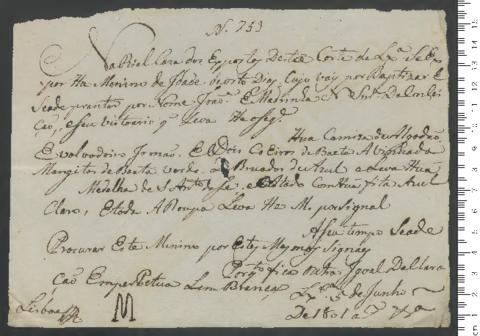 N. 753
Na Rial Caza dos Expostos Desta Corte de Lxª Se Ex
por Hu Menino de Idade de oito Dias Cujo vay por Baptizar E
Se ade prantar por Nome Joaõ E Madrinha N. Snrª Da Concei
Caõ, e seu vistuario q Leva He o seg.
Hua Camiza de Algodaõ
E volvedoiro Irmaõ. E Dois Coeiros de Baeta A vinhada
Mangitos de Baeta verde. azul e Leva Hua
Medalha de S. Antº Com Hua fita Azul
Claro, E toda A Roupa Leva He M. por Signal
A seu tempo Se ade
Procurar Este Menino por Estes Mesmos Signaes
fica outra Igoal Declara
Caõ Em Sem Branca
Lxª 5 de Junho
De 1801
Lisboa
M